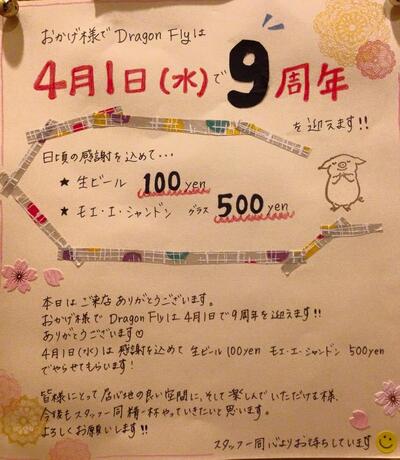 おかげ様で Dragon Flyは
4月1日(水)で9周年
を迎えます!!
日頃の感謝を込めて・・・
★ 生ビール 100yen
★ モエ・エ・シャンドン グラス 500yen
本日は ご来店 ありがとうございます。
おかげ様で Dragon Flyは 4月1日で9周年を迎えます!!
ありがとうございます♡
4月1日(水)は 感謝を込めて 生ビール100yen モエ・エ・シャンドン 500yen
でやらせてもらいます!
皆様にとって 居心地の良い空間に、そして楽しんでいただける様、
今後もスタッフ一同 精一杯やっていきたいと思います。
よろしくお願いします!!
スタッフ一同心よりお待ちしています